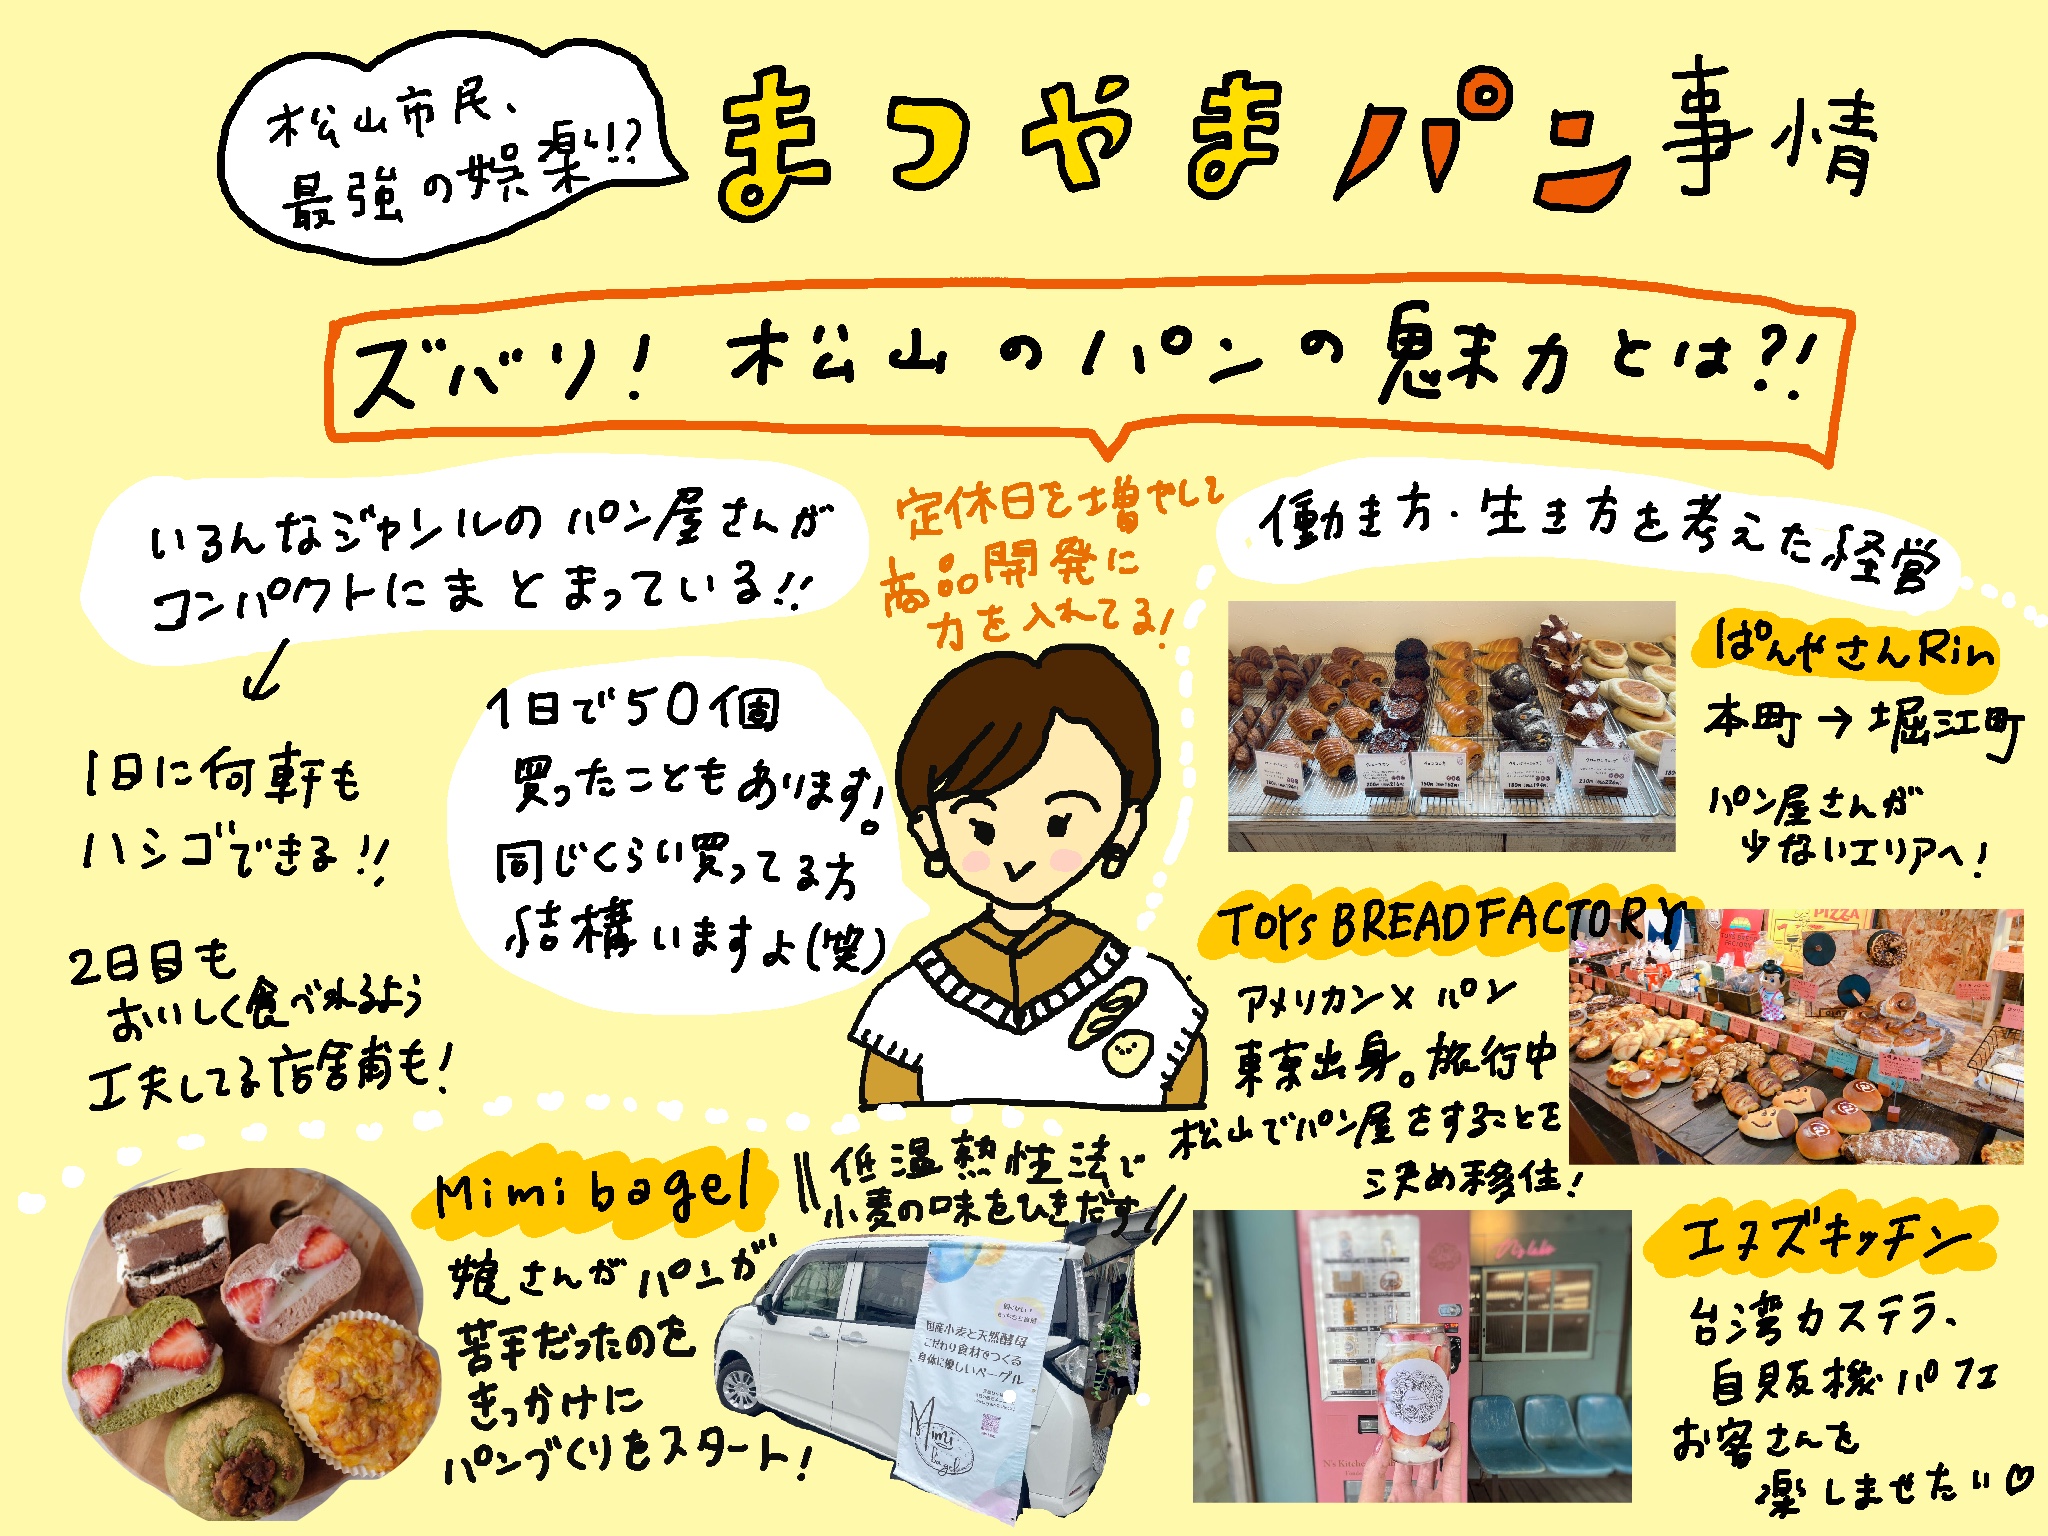 松山市民、
最強の娯楽!!?
まつやまパン事情
ズバリ! 松山のパンの魅力とは?!
いろんなジャンルのパン屋さんが
コンパクトにまとまっている!!
1日に何軒も
ハシゴできる!!
2日目も
おいしく食べれるよう
工夫してる店舗も!
1日で50個
買ったこともあります!
同じくらい買ってる方
結構いますよ(笑)
定休日を増やして
商品開発に
力を入れてる!
働き方・生き方を考えた経営
ぱんやさんRin
本町→堀江町
パン屋さんが
少ないエリアへ!
TOYs BREADFACTORY
アメリカン×パン
東京出身。旅行中
松山でパン屋をすることを
決め移住!
PIZZA
Mimi bagel
娘さんがパンが
苦手だったのを
きっかけに
パンづくりをスタート!
低温熱性法で
小麦の味をひきだす
国産小麦と天然酵母
こだわり食材でつくる
身体に優しいベーグル
Mimi
bagel
エヌズキッチン
台湾カステラ、
自販機パフェ
お客さんを
楽しませたい♡
N's Kitchen